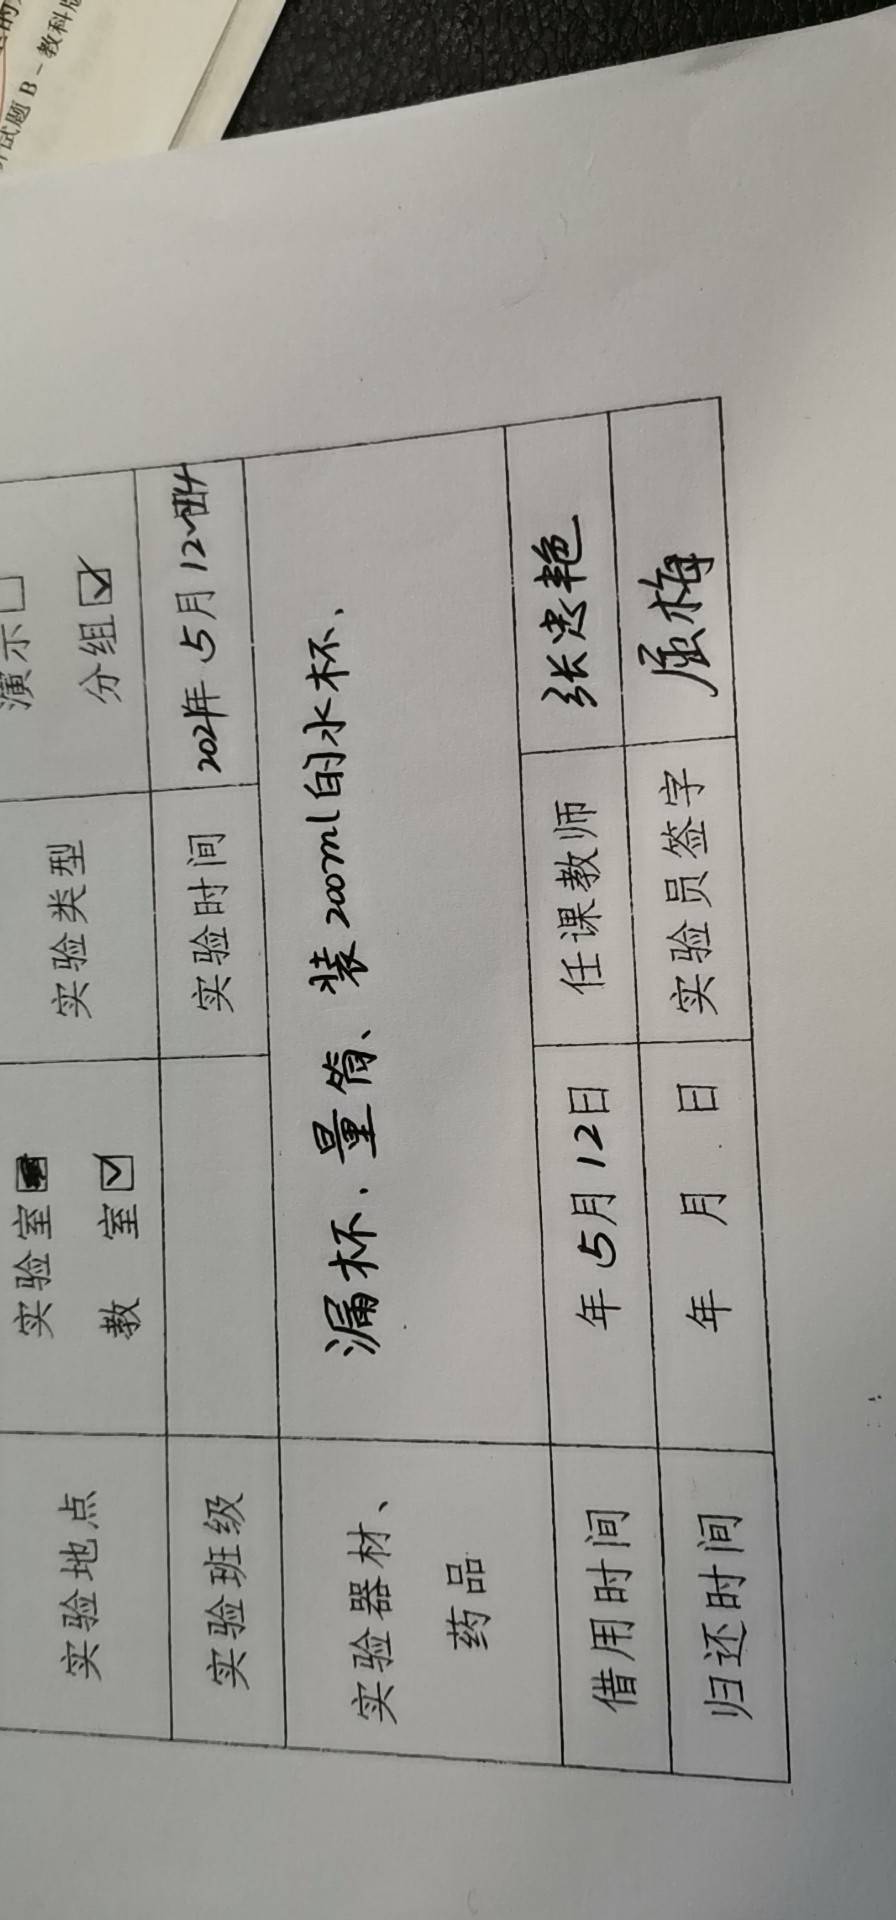 试题 B－教科版
演示□
实验地点 实验室 实验类型 分组☑
教 室☑
实验班级 实验时间 2021年5月12
实验器材、药品 漏杯、量筒、装200ml的水杯、
借用时间 年5月12日 任课教师 张忠艳
归还时间 年 月 日 实验员签字 屈梅